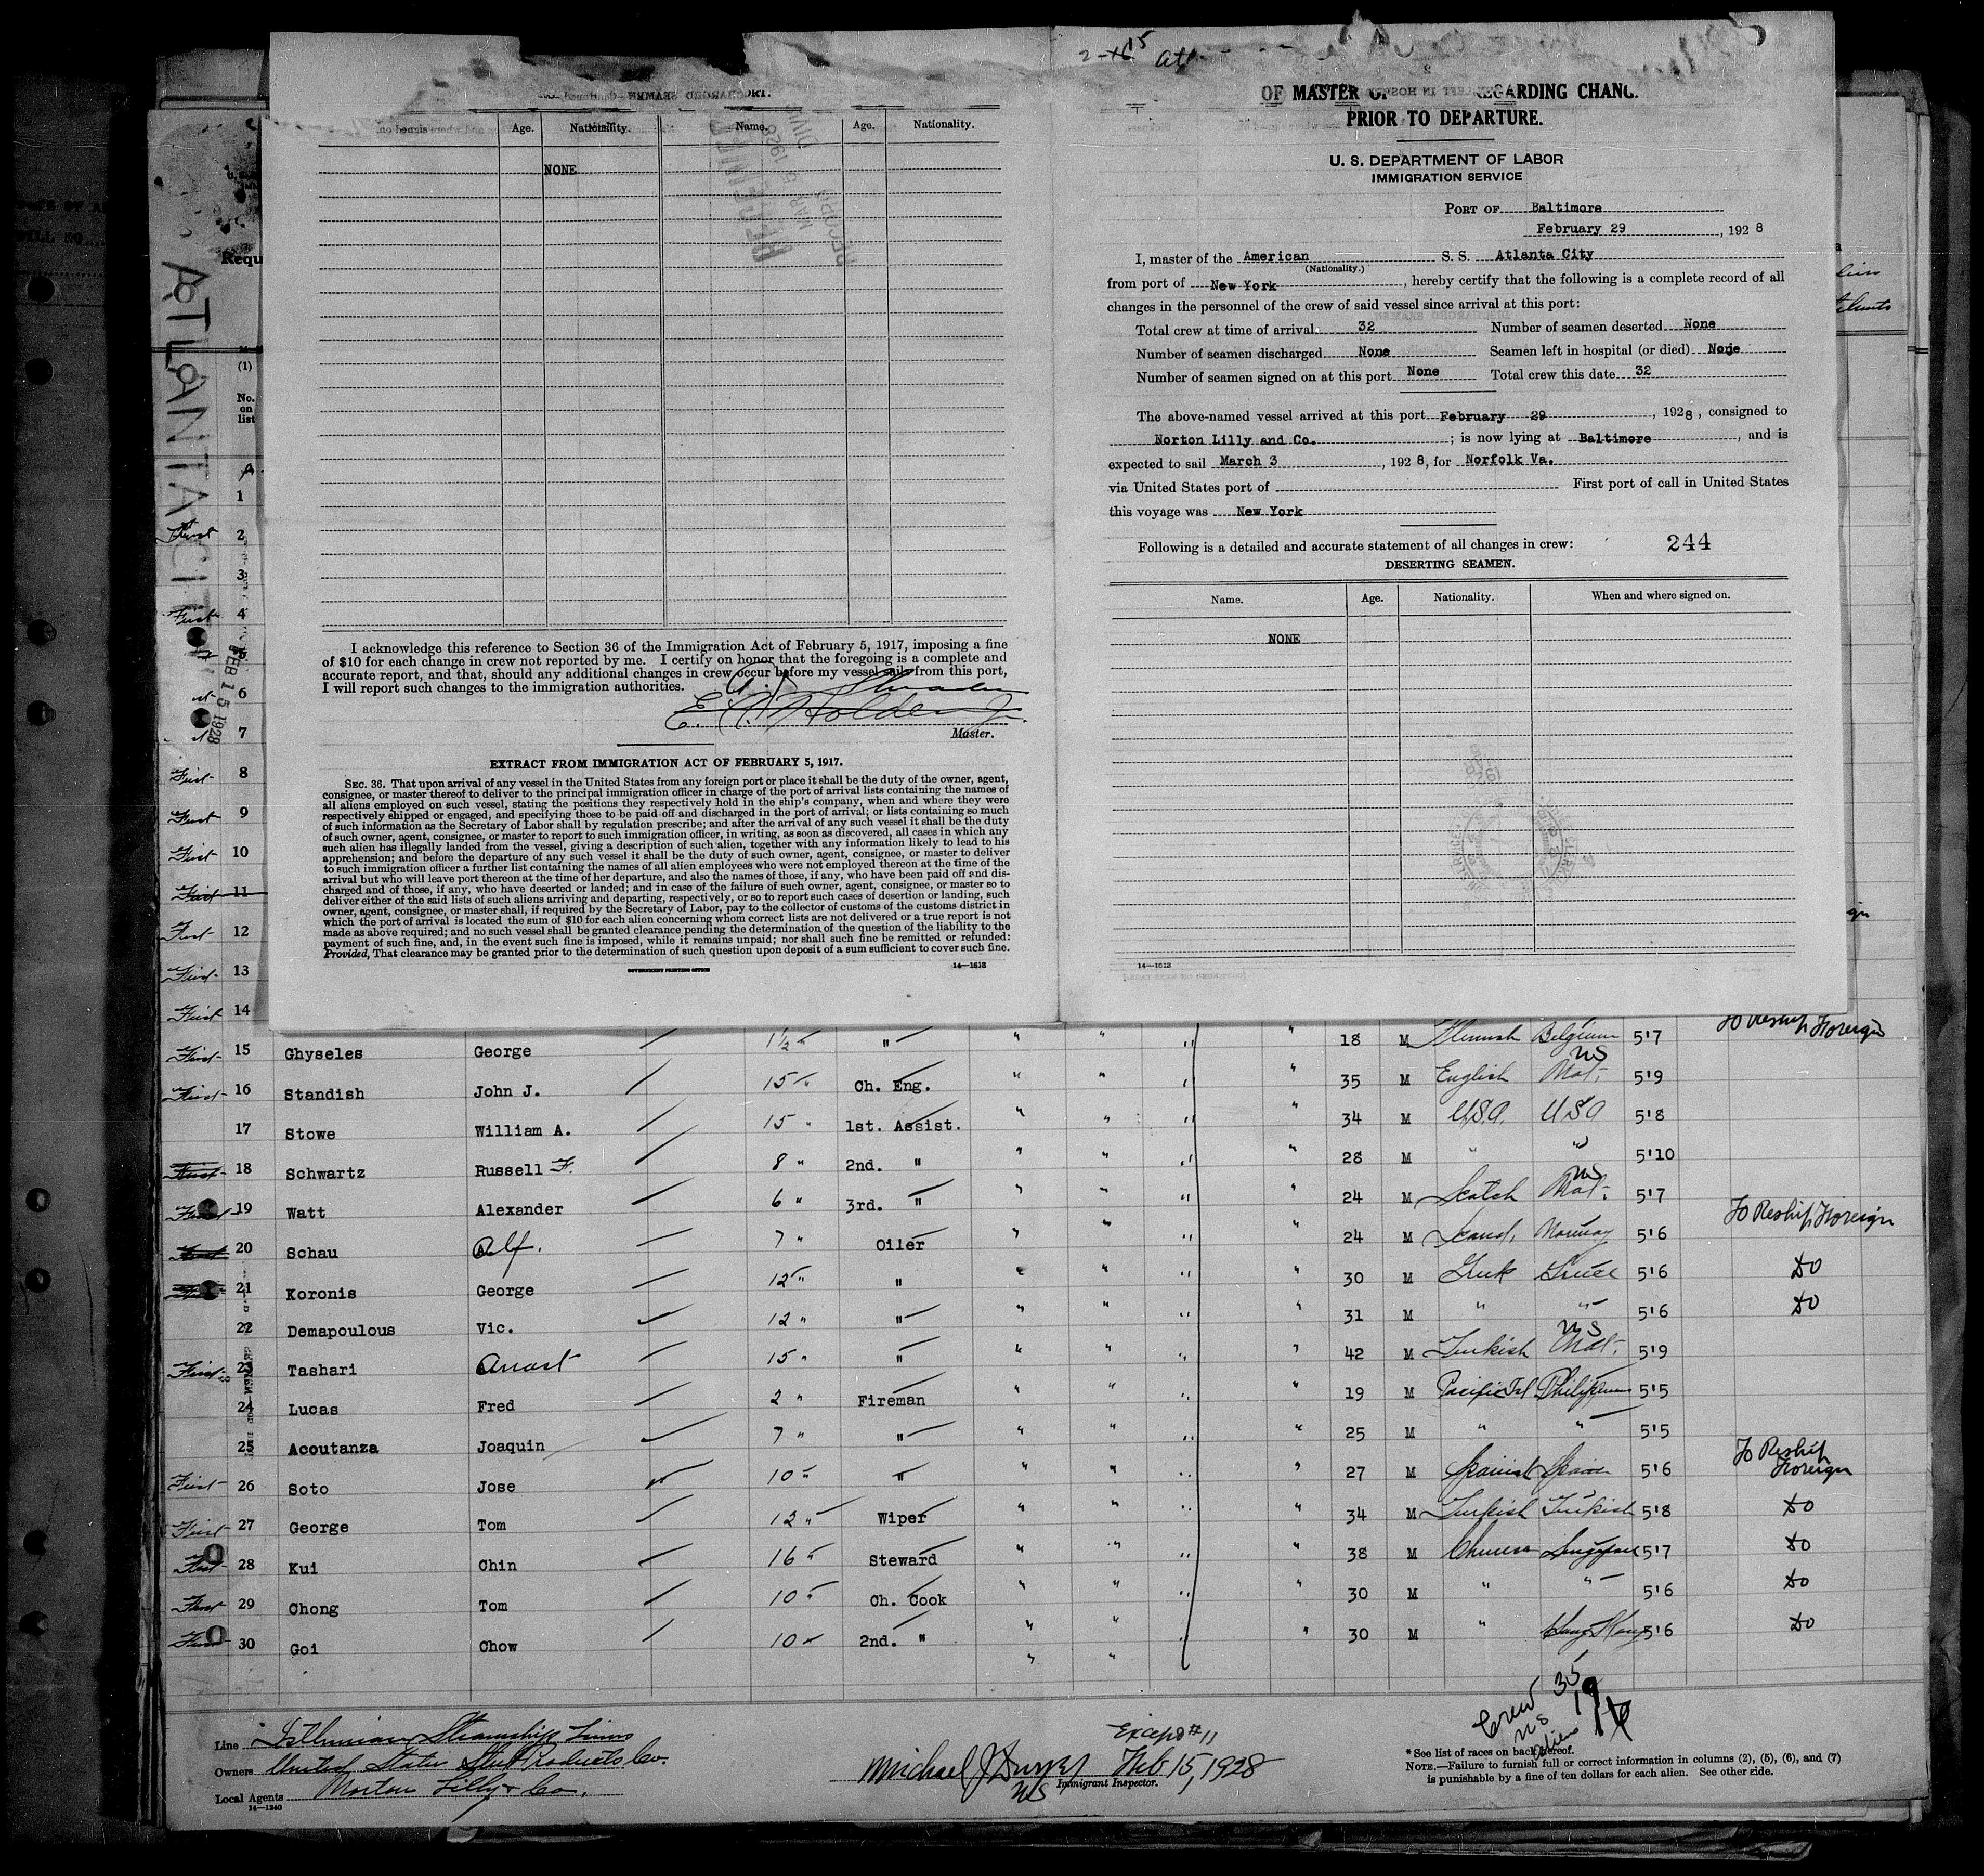 Age.
Nationality.
Name.
Age.
Nationality.
NONE
I acknowledge this reference to Section 36 of the Immigration Act of February 5, 1917, imposing a fine
of $10 for each change in crew not reported by me. I certify on honor that the foregoing is a complete and
accurate report, and that, should any additional changes in crew occur before my vessel sails from this port,
I will report such changes to the immigration authorities.
Master.
EXTRACT FROM IMMIGRATION ACT OF FEBRUARY 5, 1917.
SEC. 36. That upon arrival of any vessel in the United States from any foreign port or place it shall be the duty of the owner, agent,
consignee, or master thereof to deliver to the principal immigration officer in charge of the port of arrival lists containing the names of
all aliens employed on such vessel, stating the positions they respectively hold in the ship's company, when and where they were
respectively shipped or engaged, and specifying those to be paid off and discharged in the port of arrival; or lists containing so much
of such information as the Secretary of Labor shall by regulation prescribe; and after the arrival of any such vessel it shall be the duty
of such owner, agent, consignee, or master to report to such immigration officer, in writing, as soon as discovered, all cases in which any
such alien has illegally landed from the vessel, giving a description of such alien, together with any information likely to lead to his
apprehension; and before the departure of any such vessel it shall be the duty of such owner, agent, consignee, or master to deliver
to such immigration officer a further list containing the names of all alien employees who were not employed thereon at the time of the
arrival but who will leave port thereon at the time of her departure, and also the names of those, if any, who have been paid off and dis-
charged and of those, if any, who have deserted or landed; and in case of the failure of such owner, agent, consignee, or master so to
deliver either of the said lists of such aliens arriving and departing, respectively, or so to report such cases of desertion or landing, such
owner, agent, consignee, or master shall, if required by the Secretary of Labor, pay to the collector of customs of the customs district in
which the port of arrival is located the sum of $10 for each alien concerning whom correct lists are not delivered or a true report is not
made as above required; and no such vessel shall be granted clearance pending the determination of the question of the liability to the
payment of such fine, and, in the event such fine is imposed, while it remains unpaid; nor shall such fine be remitted or refunded:
Provided, That clearance may be granted prior to the determination of such question upon deposit of a sum sufficient to cover such fine.
GOVERNMENT PRINTING OFFICE
14—1613
OF MASTER REGARDING CHANG
PRIOR TO DEPARTURE.
U. S. DEPARTMENT OF LABOR
IMMIGRATION SERVICE
PORT OF Baltimore
February 29, 1928
I, master of the American S. S. Atlanta City
(Nationality.)
from port of New York, hereby certify that the following is a complete record of all
changes in the personnel of the crew of said vessel since arrival at this port:
Total crew at time of arrival 32 Number of seamen deserted None
Number of seamen discharged None Seamen left in hospital (or died) None
Number of seamen signed on at this port None Total crew this date 32
The above-named vessel arrived at this port February 29, 1928, consigned to
Norton Lilly and Co.; is now lying at Baltimore, and is
expected to sail March 3, 1928, for Norfolk Va.
via United States port of First port of call in United States
this voyage was New York
Following is a detailed and accurate statement of all changes in crew: 244
DESERTING SEAMEN.
Name. Age. Nationality. When and where signed on.
NONE
14—1613
ATLANTA CIT
FEB 15 1928
(1)
No.
on
list
1
First 2
3
First 4
5
6
7
First 8
First 9
First 10
First 11
First 12
First 13
First 14
To Reship Foreign
First 15 Ghyseles George 1½ " " " " " " 18 M Flemish Belgium 5'7
First 16 Standish John J. 15 " Ch. Eng. " " " " 35 M English US Nat. 5'9
17 Stowe William A. 15 " 1st. Assist. " " " " 34 M U.S.A. USA 5'8
First 18 Schwartz Russell F. 8 " 2nd. " " " " " 28 M " " 5'10
First 19 Watt Alexander 6 " 3rd. " " " " " 24 M Scotch US Nat. 5'7
First 20 Schau Alf. 7 " Oiler " " " " 24 M Scand. Norway 5'6 To Reship Foreign
21 Koronis George 12 " " " " " " 30 M Greek Greece 5'6 do
22 Demapoulous Vic. 12 " " " " " " 31 M " " 5'6 do
First 23 Tashari Anast 15 " " " " " " 42 M Turkish US Nat. 5'9
24 Lucas Fred 2 " Fireman " " " " 19 M Pacific Isl Philippines 5'5
25 Acoutanza Joaquin 7 " " " " " " 25 M " " 5'5
First 26 Soto Jose 10 " " " " " " 27 M Spanish Spain 5'6 To Reship Foreign
First 27 George Tom 12 " Wiper " " " " 34 M Turkish Turkish 5'8 do
First 28 Kui Chin 16 " Steward " " " " 38 M Chinese Singapore 5'7 do
First 29 Chong Tom 10 " Ch. Cook " " " " 30 M " " 5'6 do
First 30 Goi Chow 10 " 2nd. " " " " " 30 M " Hong Kong 5'6 do
Crew 35
US 19
Aliens 16
Line Isthmian Steamship Lines
Owners United States Steel Products Co.
Local Agents Norton Lilly & Co.
14—1240
Except #11
Feb 15, 1928
Immigrant Inspector.
* See list of races on back hereof.
NOTE.—Failure to furnish full or correct information in columns (2), (5), (6), and (7)
is punishable by a fine of ten dollars for each alien. See other side.